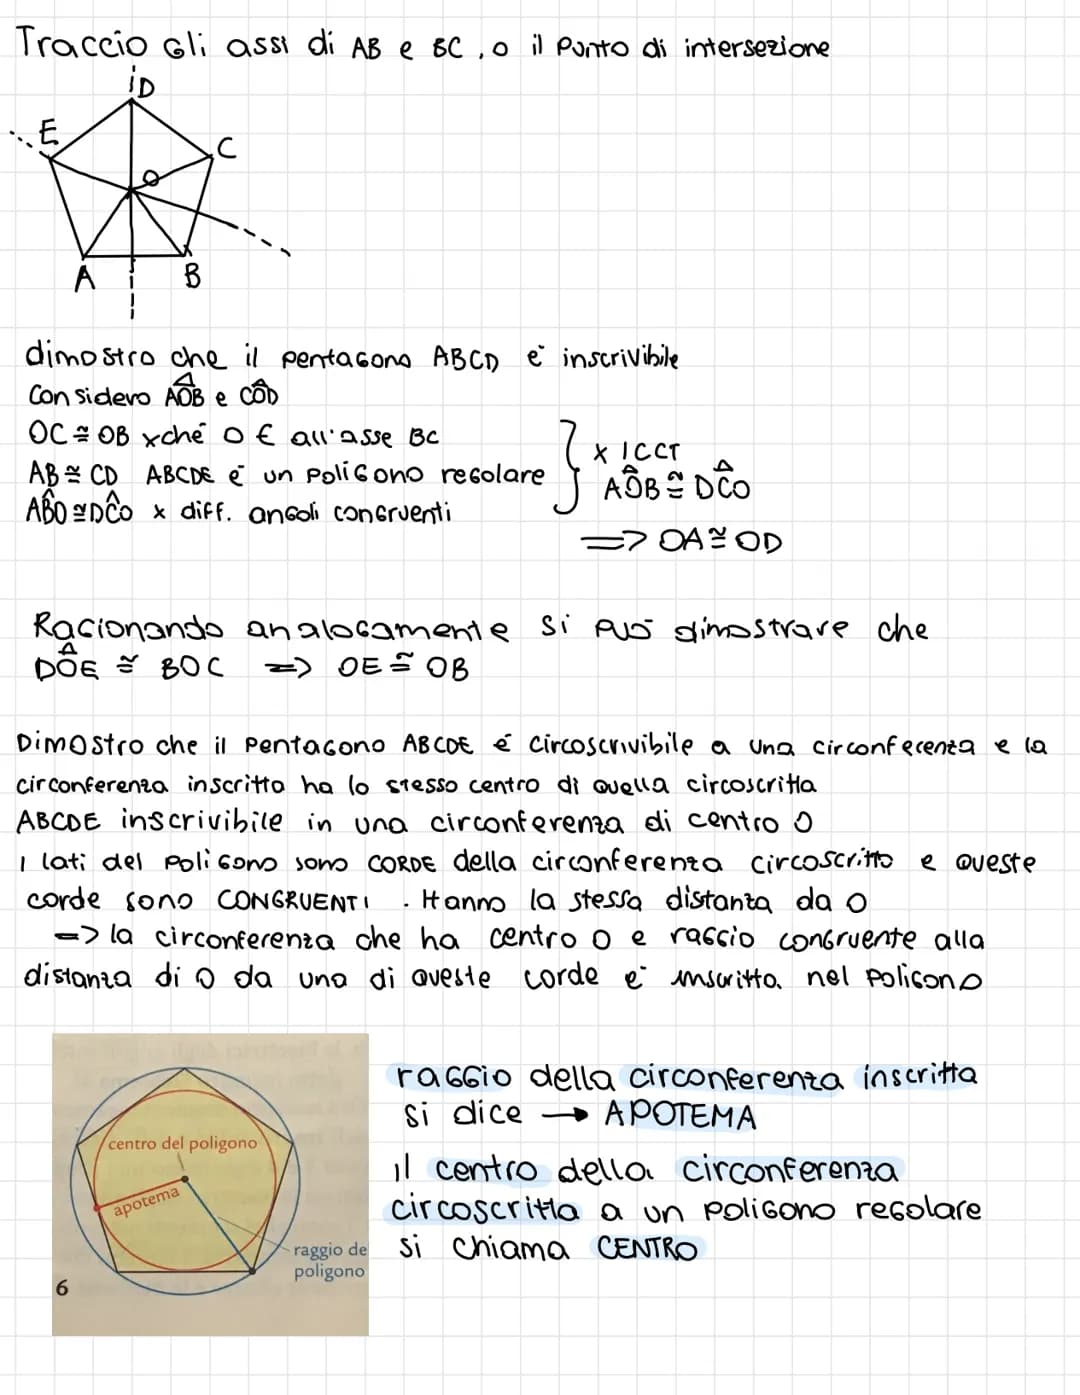 Traccio Gli assi di AB e BC, o il Punto di intersezione
D
E
C
O
A
B
dimostro che il pentagono ABCD è inscrivibile
Considero AÔB e CÔD
OC ≅ OB xché O ∈ all'asse BC
AB ≅ CD ABCDE è un poliGono reGolare
AB̂O ≅ DĈO x diff. anGoli conGruenti
x ICCT
AÔB ≅ DĈO
=> OA ≅ OD
RaGionando analoGamente si può dimostrare che
DÔE ≅ BOC => OE ≅ OB
Dimostro che il PentaGono ABCDE é circoscrivibile a una circonferenza e la
circonferenza inscritta ha lo stesso centro di quella circoscritta
ABCDE inscrivibile in una circonferenza di centro O
I lati del PoliGono sono CORDE della circonferenza circoscritto e queste
corde sono CONGRUENTI. Hanno la stessa distanza da O
=> la circonferenza che ha centro O e raGGio conGruente alla
distanza di O da una di queste corde è inscritta nel PoliGono
centro del poligono
apotema
raggio de
poligono
6
raGGio della circonferenza inscritta
si dice → APOTEMA
il centro della circonferenza
circoscritta a un poliGono reGolare
si chiama CENTRO